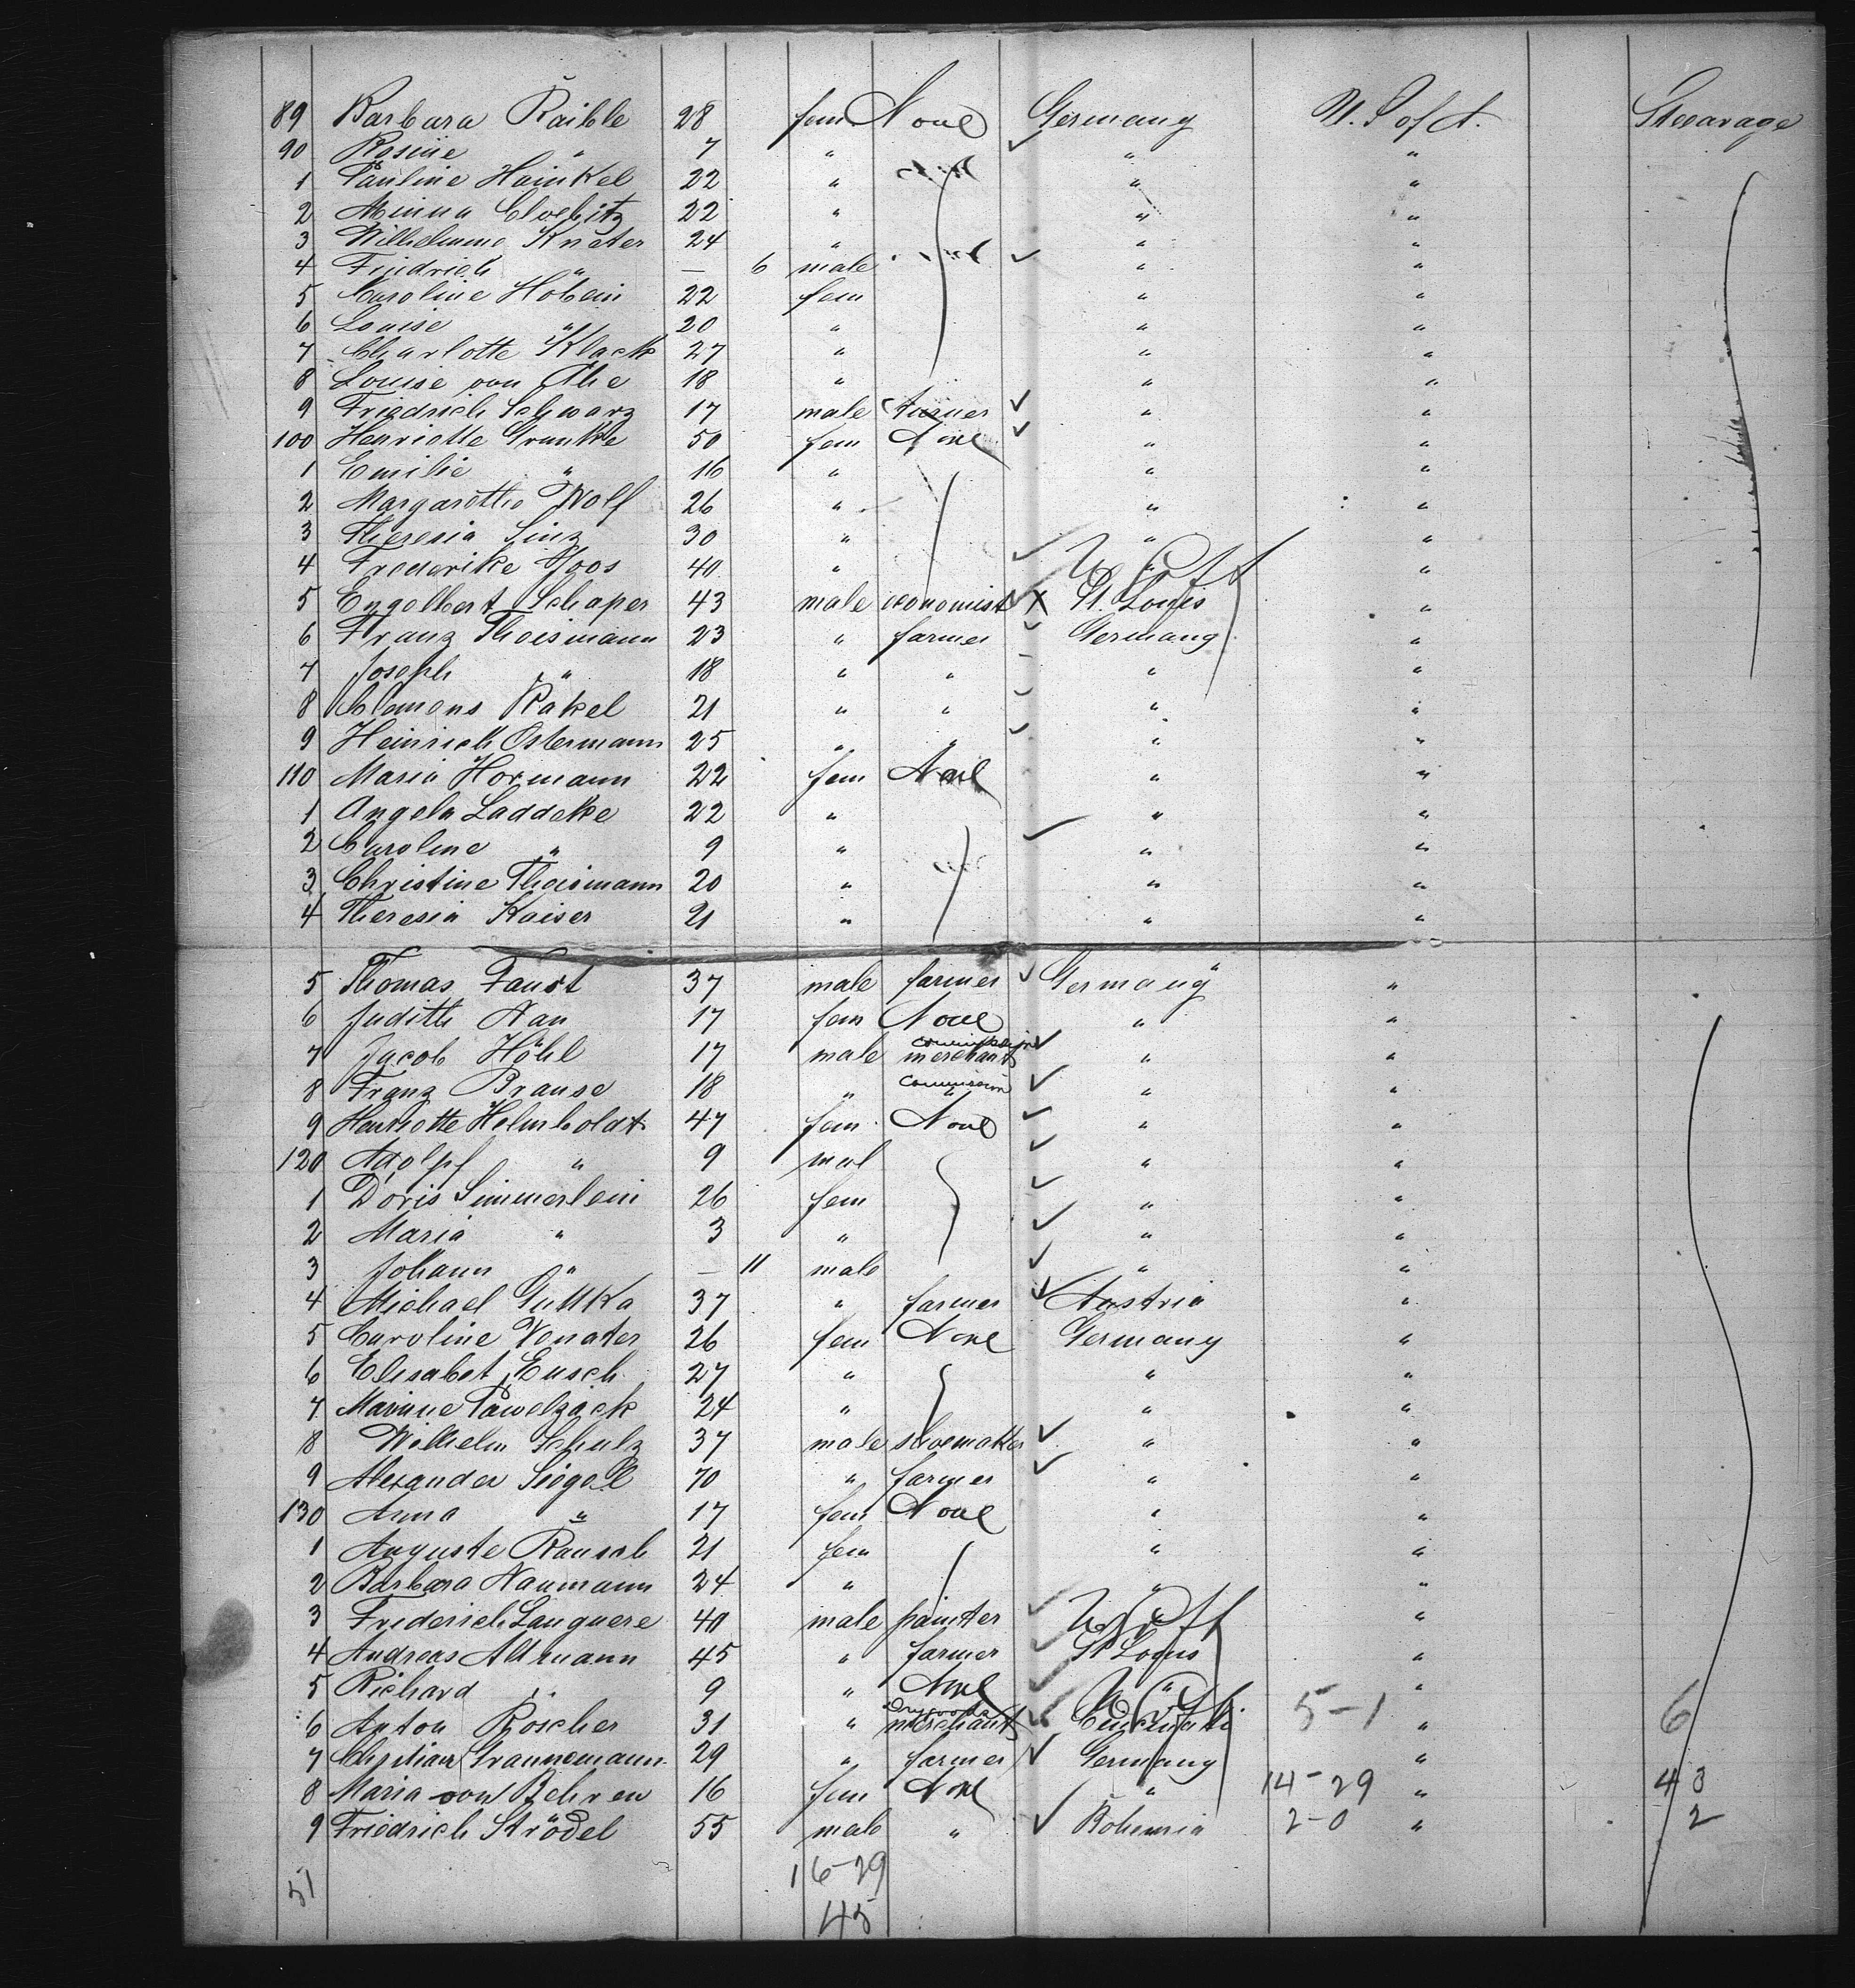 89 Barbara Raible 28 fem None Germany U. S of A. Steerage
90 Rosine " 7 " " "
1 Pauline Hainkel 22 " " "
2 Minna 22 " " "
3 Wilhelmine Knater 24 " " "
4 Friedrich " — 6 male " "
5 Caroline Hobein 22 fem " "
6 Louise " 20 " " "
7 Charlotte Klack 27 " " "
8 Louise von Ahe 18 " " "
9 Friedrich Schwarz 17 male turner " "
100 Henriette Grunke 50 fem None " "
1 Emilie " 16 " " "
2 Margarethe Wolf 26 " " "
3 Theresia Sinz 30 " " "
4 Frederike Joos 40 " " "
5 Engelbert Schaper 43 male economist X St. Louis "
6 Franz Theismann 23 " farmer Germany "
7 Joseph " 18 " " " "
8 Clemens Rakel 21 " " " "
9 Heinrich Ostermann 25 " " " "
110 Maria Hormann 22 fem None " "
1 Angela Laddeke 22 " " "
2 Caroline " 9 " " "
3 Christine Theismann 20 " " "
4 Theresia Kaiser 21 " " "
5 Thomas Faust 37 male farmer Germany "
6 Judith Nau 17 fem None " "
7 Jacob Höhl 17 male commission merchant " "
8 Franz Brause 18 " commission " " "
9 Henriette Helmboldt 47 fem None " "
120 Adolpf " 9 mal " "
1 Doris Simmerlein 26 fem " "
2 Maria " 3 " " "
3 Johann " — 11 male " "
4 Michael 37 " farmer Austria "
5 Caroline Venater 26 fem None Germany "
6 Elisabet Eusch 27 " " "
7 Pawelzack 24 " " "
8 Wilhelm Schulz 37 male shoemaker " "
9 Alexander Siegel 70 " farmer " "
130 Anna " 17 fem None " "
1 Auguste Rausch 21 fem " "
2 Barbara Naumann 24 " " "
3 Friederich Languere 40 male painter "
4 Andreas Altmann 45 " farmer St Louis "
5 Richard " 9 " None " "
6 Anton Röscher 31 " Drygoods merchant Cincinati 5-1 " 6
7 Christian Grannemann 29 " farmer Germany "
8 Maria von Behren 16 fem None " 14-29 " 43
9 Friedrich Ströbel 55 male " Bohemia 2-0 " 2
51 16-29
45